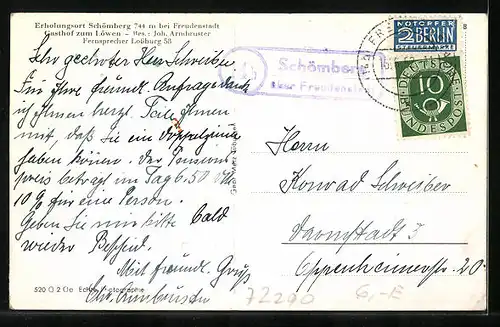 Erholungsort Schömberg 744 m bei Freudenstadt
Gasthof zum Löwen – Bes.: Joh. Armbruster
Fernsprecher Loßburg 58
Sehr geehrter Herr Schreiber
Für Ihre freundl. Anfrage danke
ich Ihnen herzl. Teile Ihnen
mit, daß Sie ein Doppelzimmer
haben können. Der Pensions
preis beträgt im Tag 6.50 und
10 % für eine Person.
Geben Sie mir bitte bald
wieder Bescheid.
Mit freundl. Gruß
Joh. Armbruster
520 G 2 Go Echte Photographie
Schömberg
über Freudenstadt
NOTOPFER
2 BERLIN
STEUERMARKE
10
DEUTSCHE
BUNDESPOST
Herrn
Konrad Schreiber
Darmstadt 3
Oppenheimerstr. 20
72290 6,-E